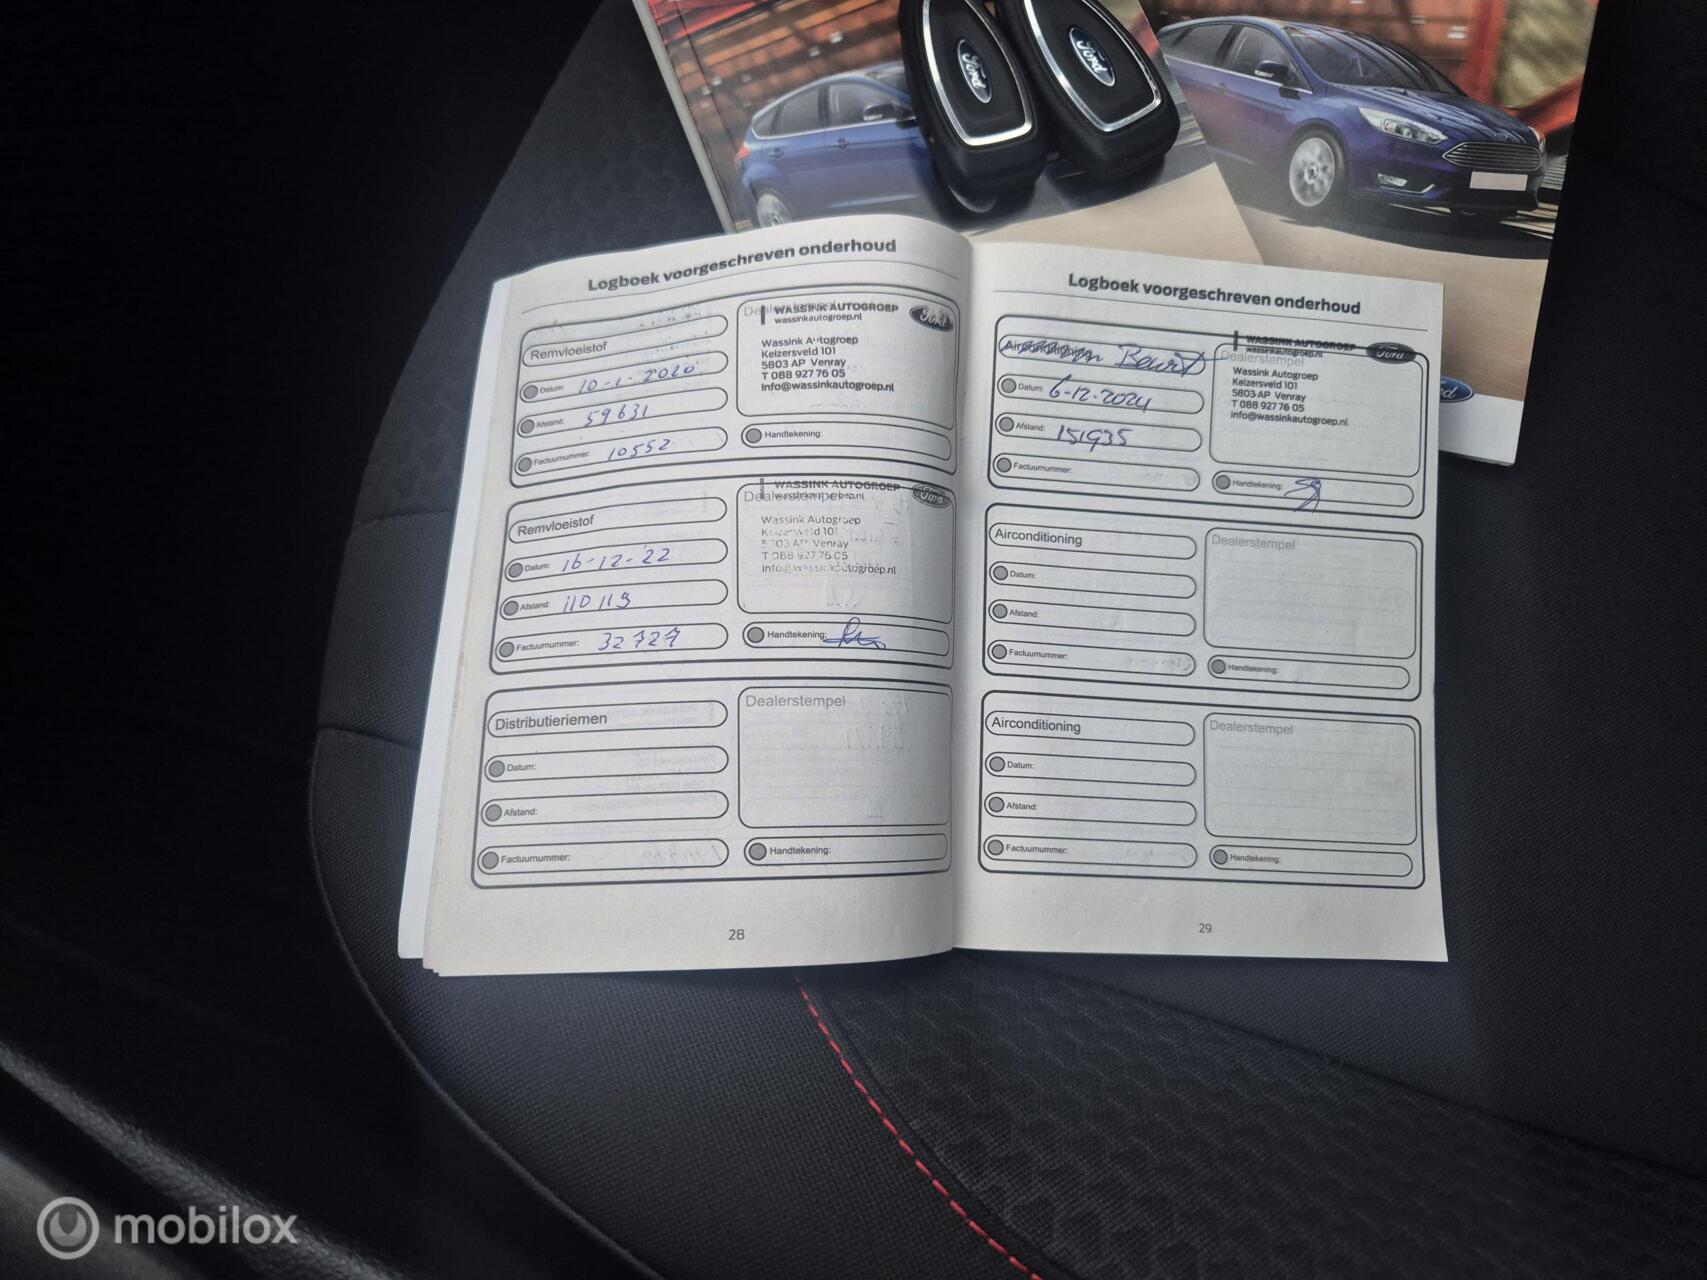 Ford
Ford
Logboek voorgeschreven onderhoud
Remvloeistof
Datum: 10-1-2020
Afstand: 59631
Factuurnummer: 10552
Dealerstempel
WASSINK AUTOGROEP
wassinkautogroep.nl
Ford
Wassink Autogroep
Keizersveld 101
5803 AP Venray
T 088 927 76 05
info@wassinkautogroep.nl
Handtekening:
Remvloeistof
Datum: 16-12-'22
Afstand: 110119
Factuurnummer: 32727
Dealerstempel
WASSINK AUTOGROEP
wassinkautogroep.nl
Ford
Wassink Autogroep
Keizersveld 101
5803 AP Venray
T 088 927 76 05
info@wassinkautogroep.nl
Handtekening:
Distributieriemen
Datum:
Afstand:
Factuurnummer:
Dealerstempel
Handtekening:
28
Logboek voorgeschreven onderhoud
Airconditioning Beurt
Datum: 6-12-2024
Afstand: 151935
Factuurnummer:
Dealerstempel
WASSINK AUTOGROEP
wassinkautogroep.nl
Ford
Wassink Autogroep
Keizersveld 101
5803 AP Venray
T 088 927 76 05
info@wassinkautogroep.nl
Handtekening:
Airconditioning
Datum:
Afstand:
Factuurnummer:
Dealerstempel
Handtekening:
Airconditioning
Datum:
Afstand:
Factuurnummer:
Dealerstempel
Handtekening:
29
mobilox